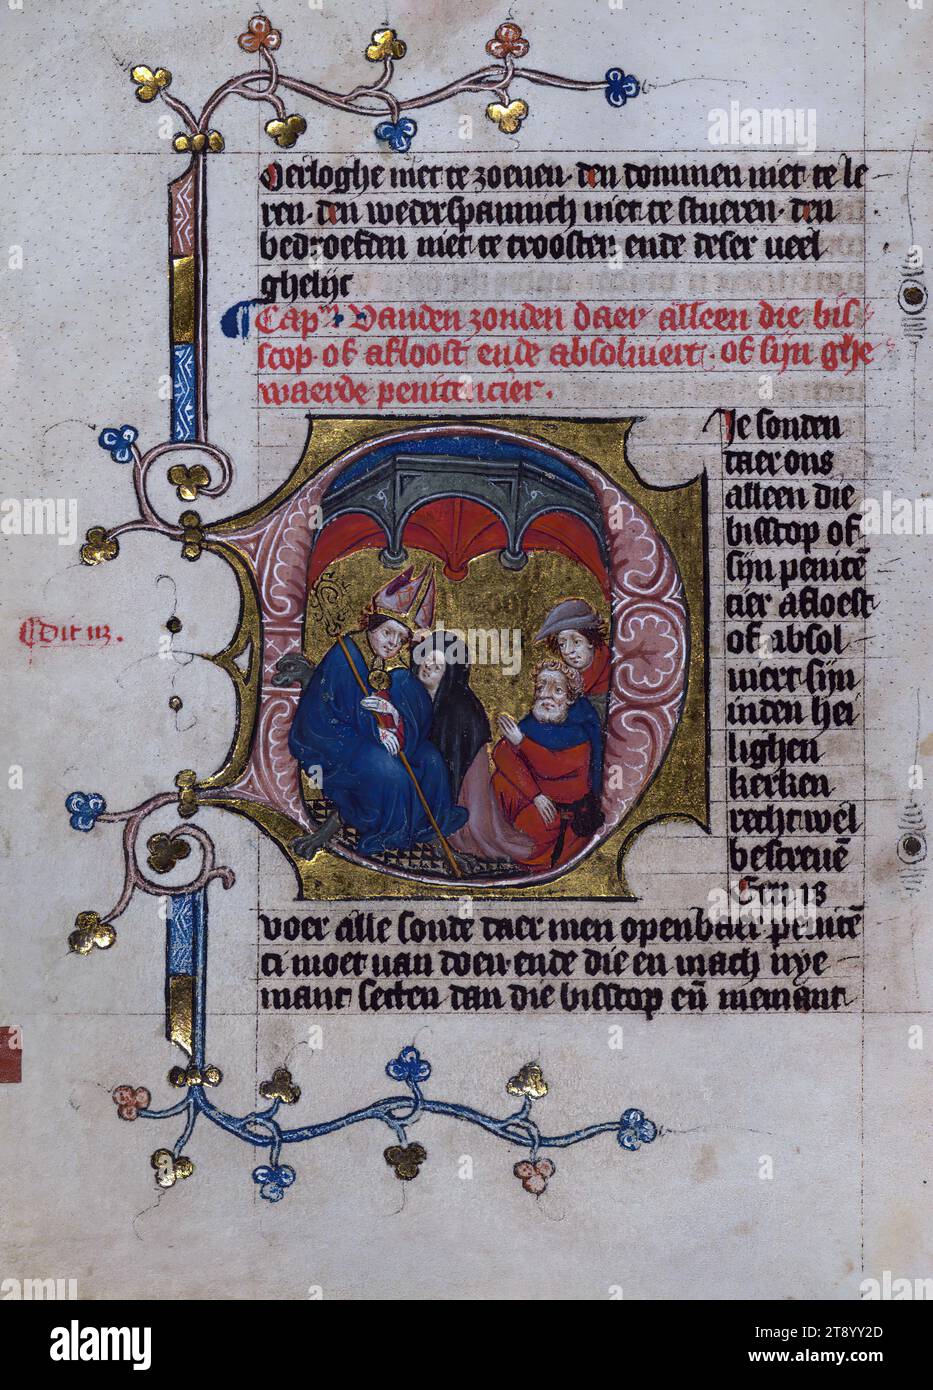 oerloghe niet te zoenen· den dommen niet te le
ren· den wederspannich niet te stueren· den
bedroefden niet te troosten ende deser veel
ghelijc
Cap. Vanden zonden daer alleen die bis
scop of afloost ende absolveert· of sijn ghe
waerde penitencier.
Dit is.
ie sonden
daer ons
alleen die
bisscop of
sijn penitē
cier afloest
of absol
veert sijn
inden hei
lighen
kerken
recht wel
bescreuē
voer alle sonde daer men openbaer penitē
ci moet van doen· ende die en mach nye
mant setten dan die bisscop eñ niemant
alamy
Image ID: 2T8YY2D
www.alamy.com